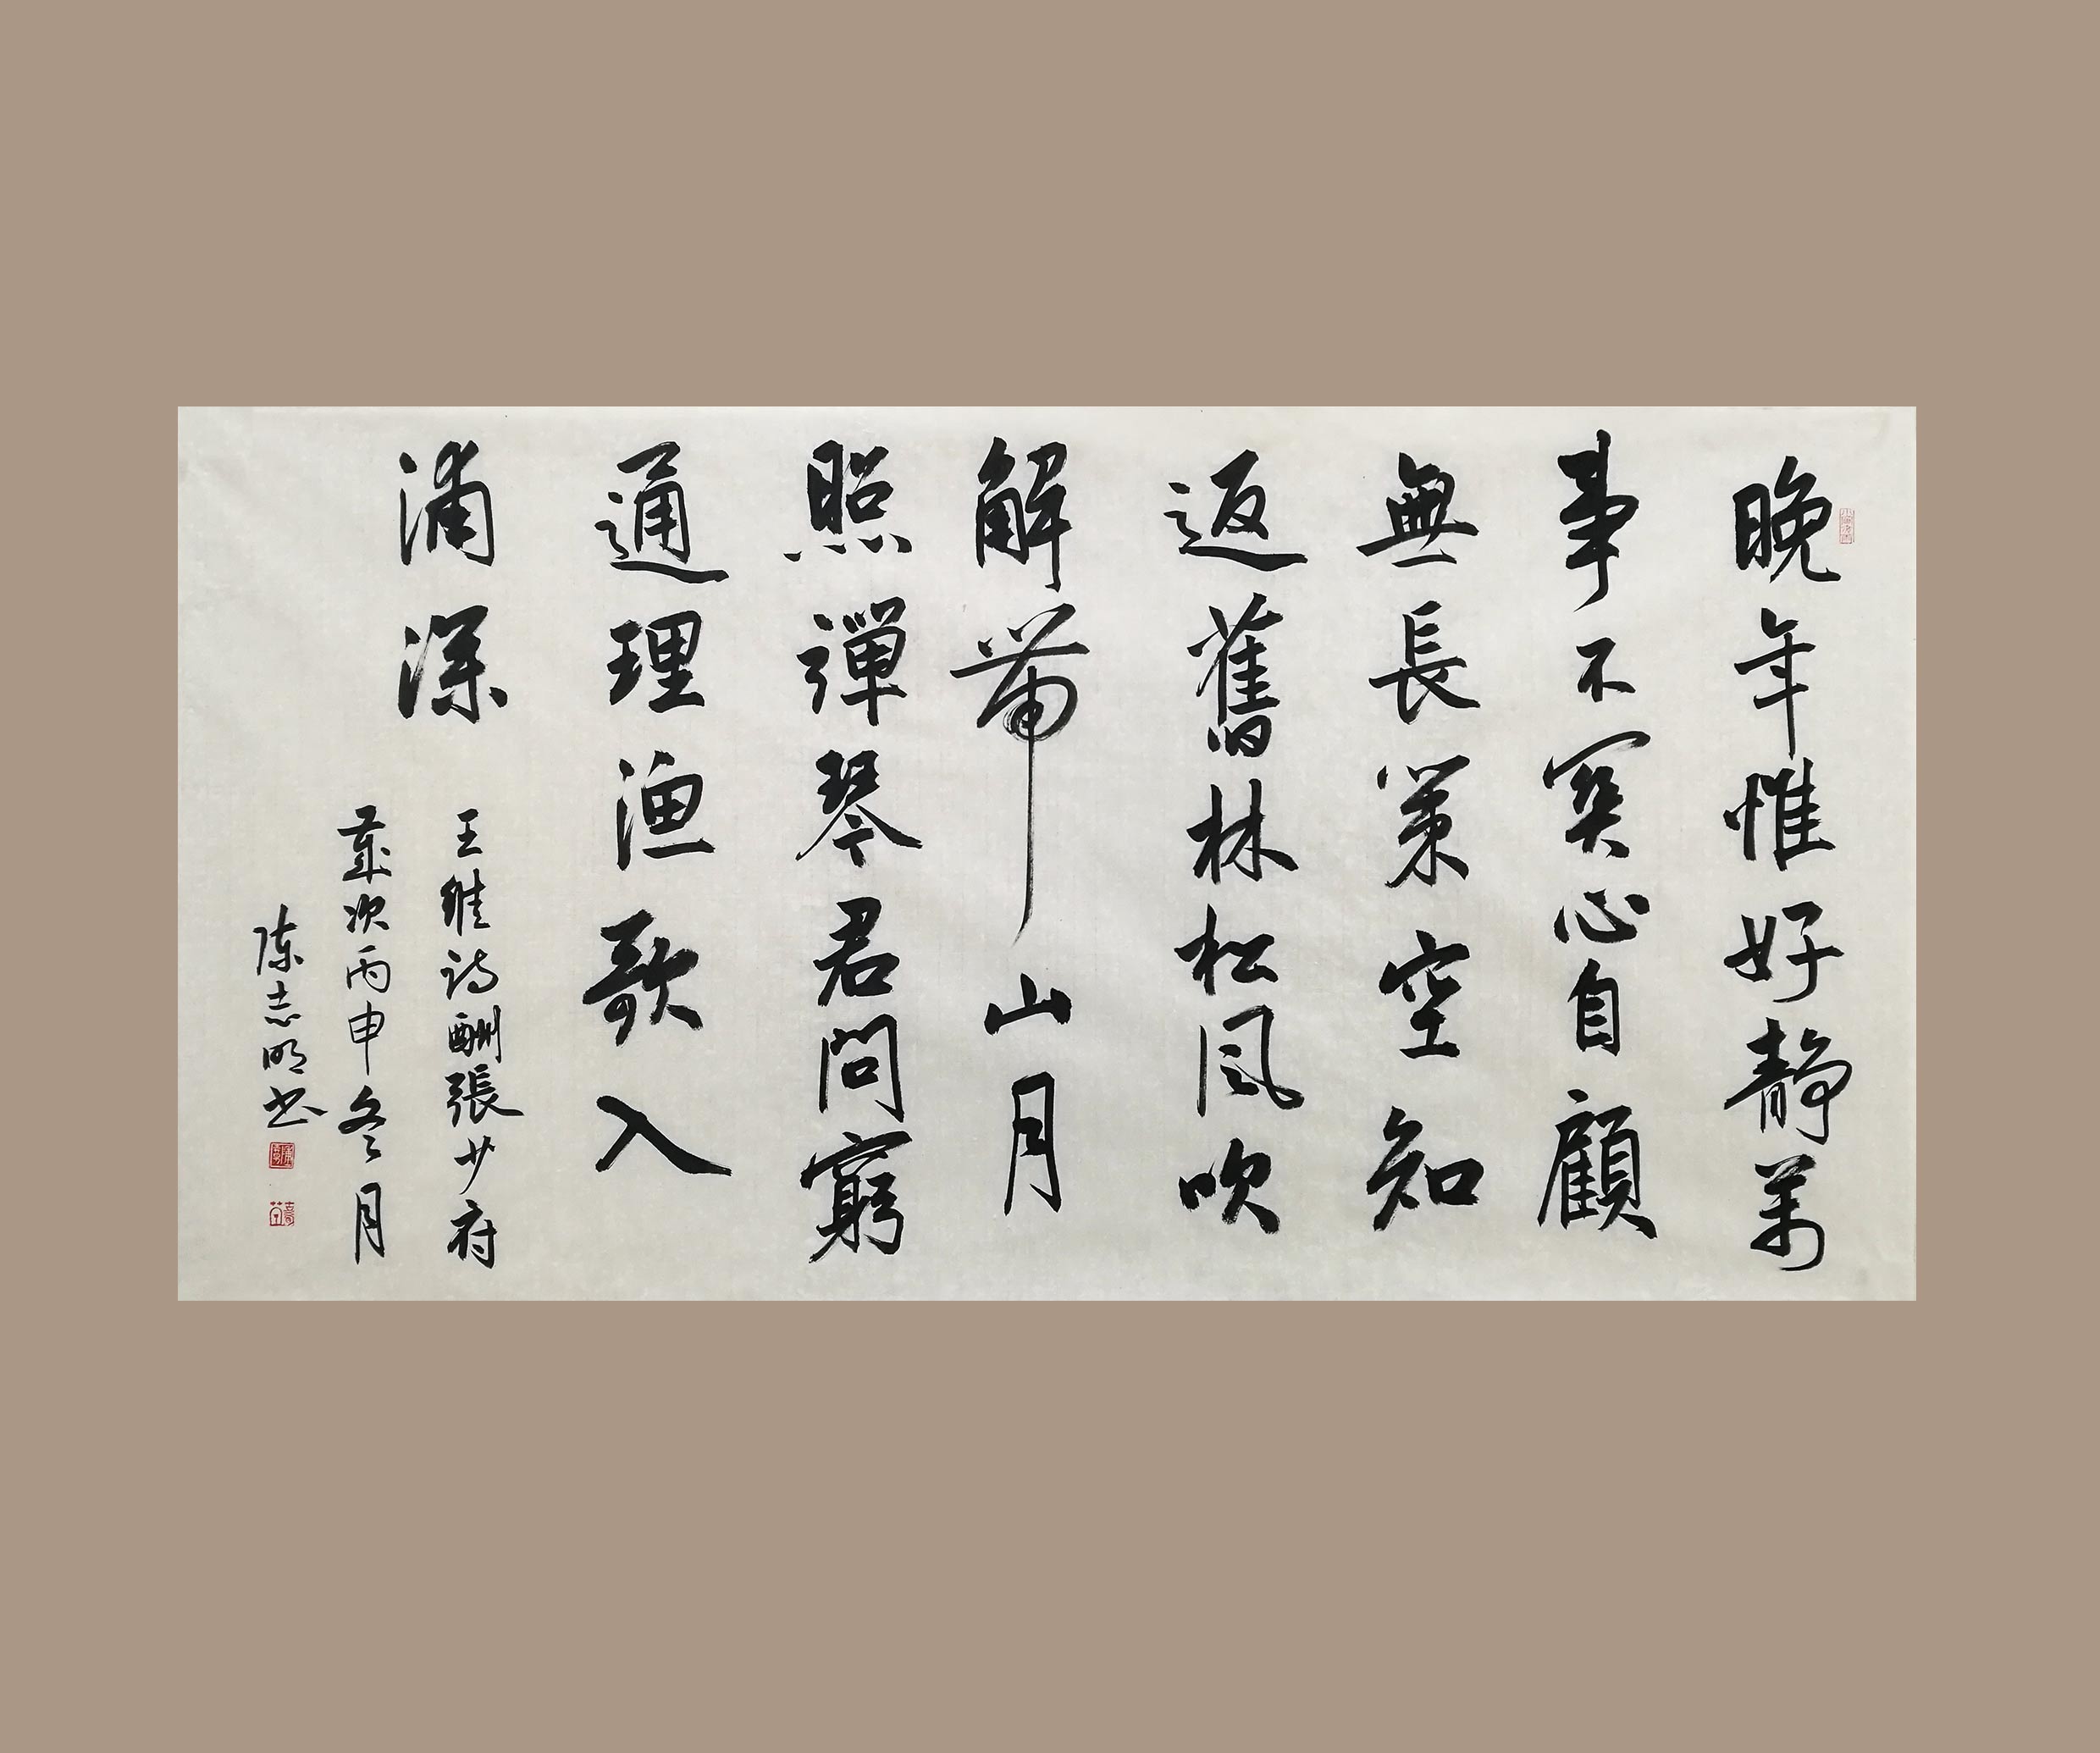 晚年惟好静萬
事不関心自顧
無長策空知
返舊林松风吹
解帶山月
照彈琴君問窮
通理漁歌入
浦深
王維诗酬張少府
歲次丙申冬月
陈志明书